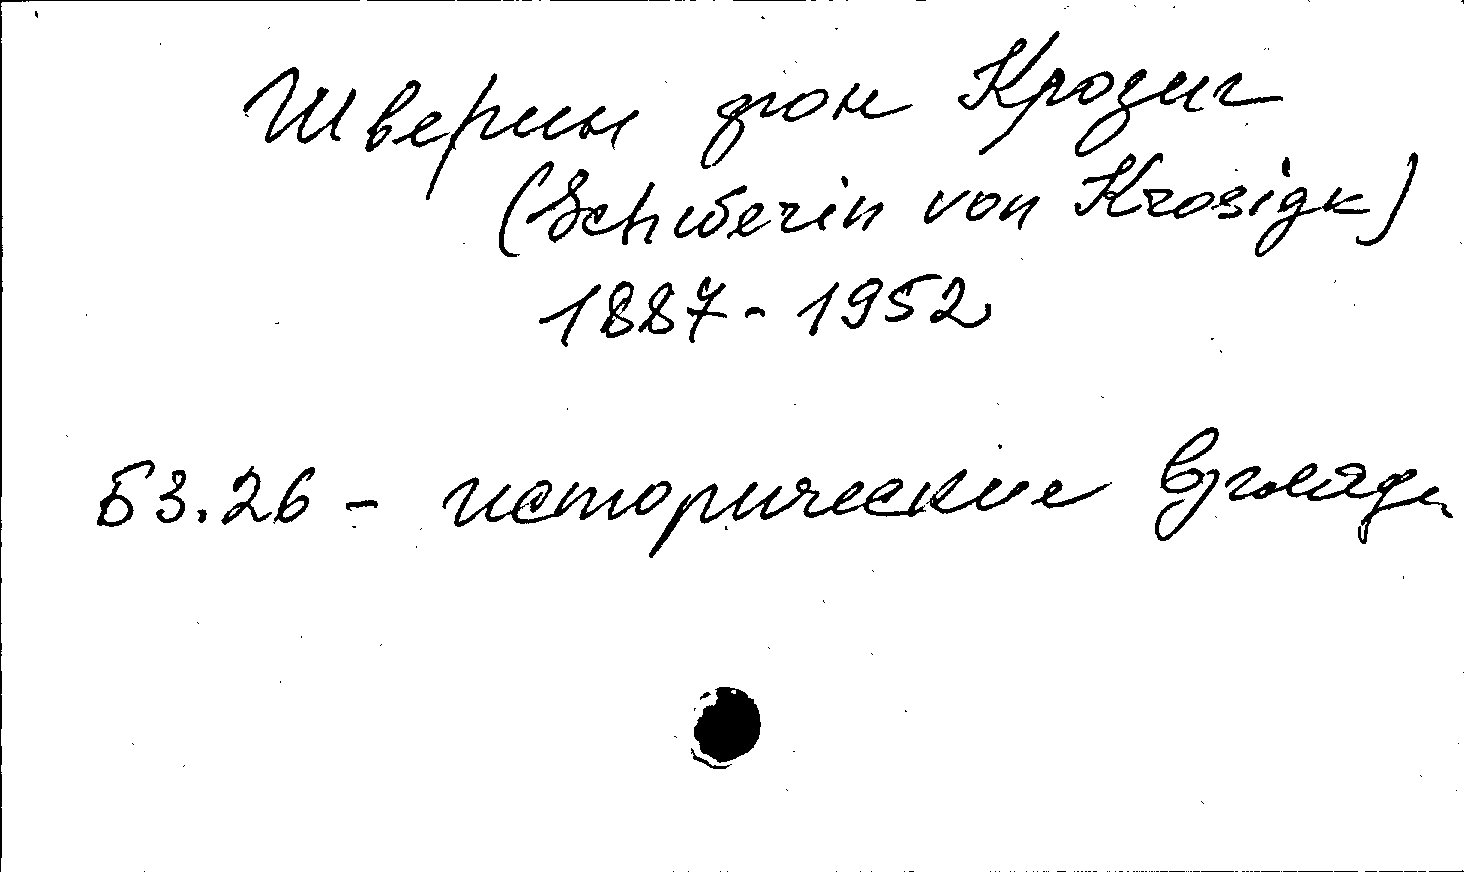 Шверин фон Крозиг
(Schwerin von Krosigk)
1887-1952
Б3.26 - исторические взгляды